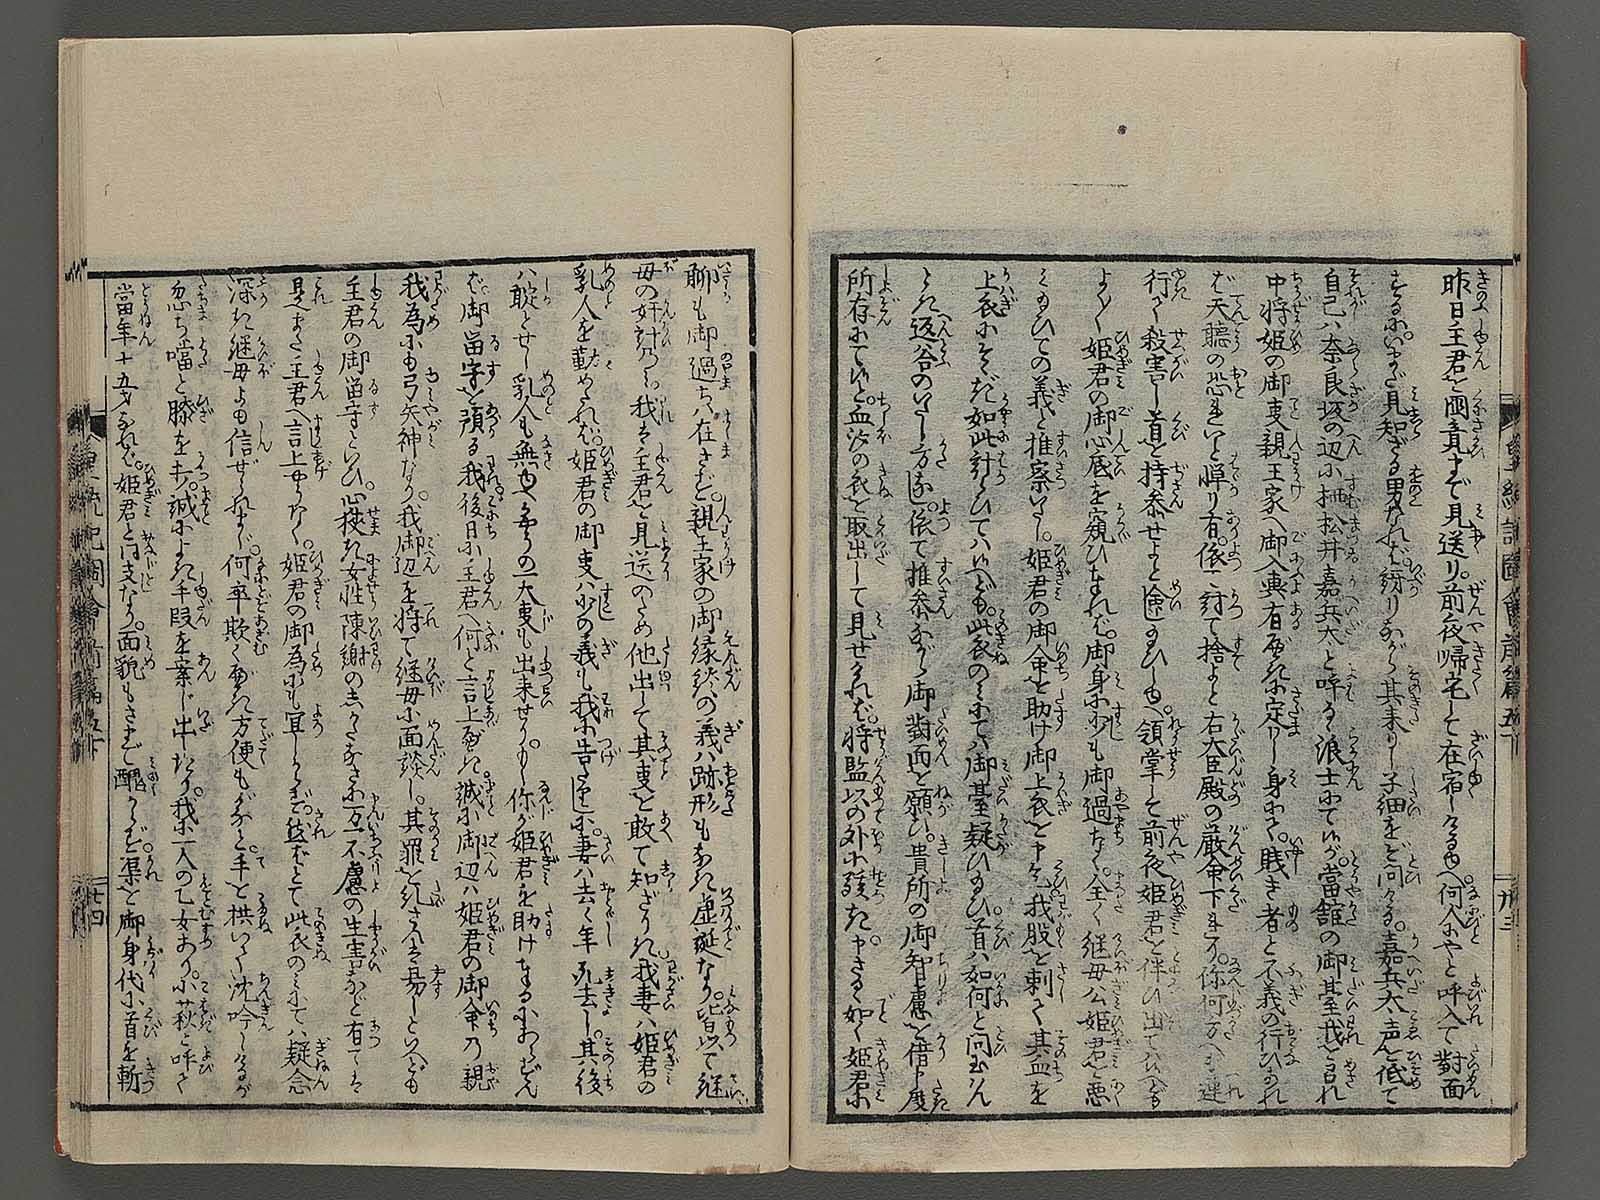 昨日主君を岡竟まで見送り。前夜帰宅して在宿しける所へ何人にやと呼入て對面
するに。いまだ見知ざる男なれば。訝りながら其来りし子細をぞ問ける。嘉兵太声を低て
自己ハ奈良坂の辺に栖松井嘉兵太と呼る浪士にて候が。當舘の御臺我を召れ
中将姫の御事親王家へ御入輿有べきに定りし身にて。賎き者と不義の行ひあれ
ば天聴の恐れいと憚り有。依て討て捨よと右大臣殿の厳命下まり。你何方へも連
行て殺害し首を持参せよと命ぜ給ひし由へ。領掌して前夜姫君を伴ひ出てハ候へども
よく〱姫君の御心底を窺ひまゐれば。御身にハ少も御過ちなく。全く継母公姫君を悪
み給ひての義と推察いたし。姫君の御命を助け御上衣を申乞。我股を刺て其血を
上衣にそゝぎ如此計らひてハ候へども。此衣のみにてハ御臺疑ひ給ひ首ハ如何と問玉はん
とき返答のいたし方なし。依て推参ながら御對面を願い。貴所の御智慮を借申度
所存にて候と。血汐の衣を取出して見せければ。将監以の外に駭き。申さるゝ如く姫君に
聊も御過ちハ在さず。親王家の御縁談の義ハ跡形もなき虚誕なり。皆以て継
母の奸計なり。我は主君を見送のため他出して其事を敢て知ざりき。我妻ハ姫君の
乳人を勤めたれば。姫君の御事ハ少の義も我に告たりしに。妻ハ去る年死去し。其後
ハ聢とせし乳人も無由へ多の一大事も出来せり。你が姫君を助けまゐらせずん
ば御留守を預る我後日に主君へ何と言上すべき。誠に御辺ハ姫君の御命の親
我為にも弓矢神なり。我御辺を将て継母に面談し。其罪を糺さんは易しといへども
主君の御留守といひ。心狭き女性陳謝の志たなさに万一不慮の生害など有ては
是また主君へ言上せん様なく。姫君の御為にも宜しからず。然ばとて此衣のみにてハ疑念
深き継母よも信ぜられまじ。何卒欺くべき方便もがなと手を拱いて沈吟しけるが
忽ち噹と膝を打。誠によき手段を案じ出たり。我に一人の乙女あり。小萩と呼て
當年十五才なれば。姫君と同支なり。面貌もさまで醜からず。渠を御身代に首を斬
廿三
廿四